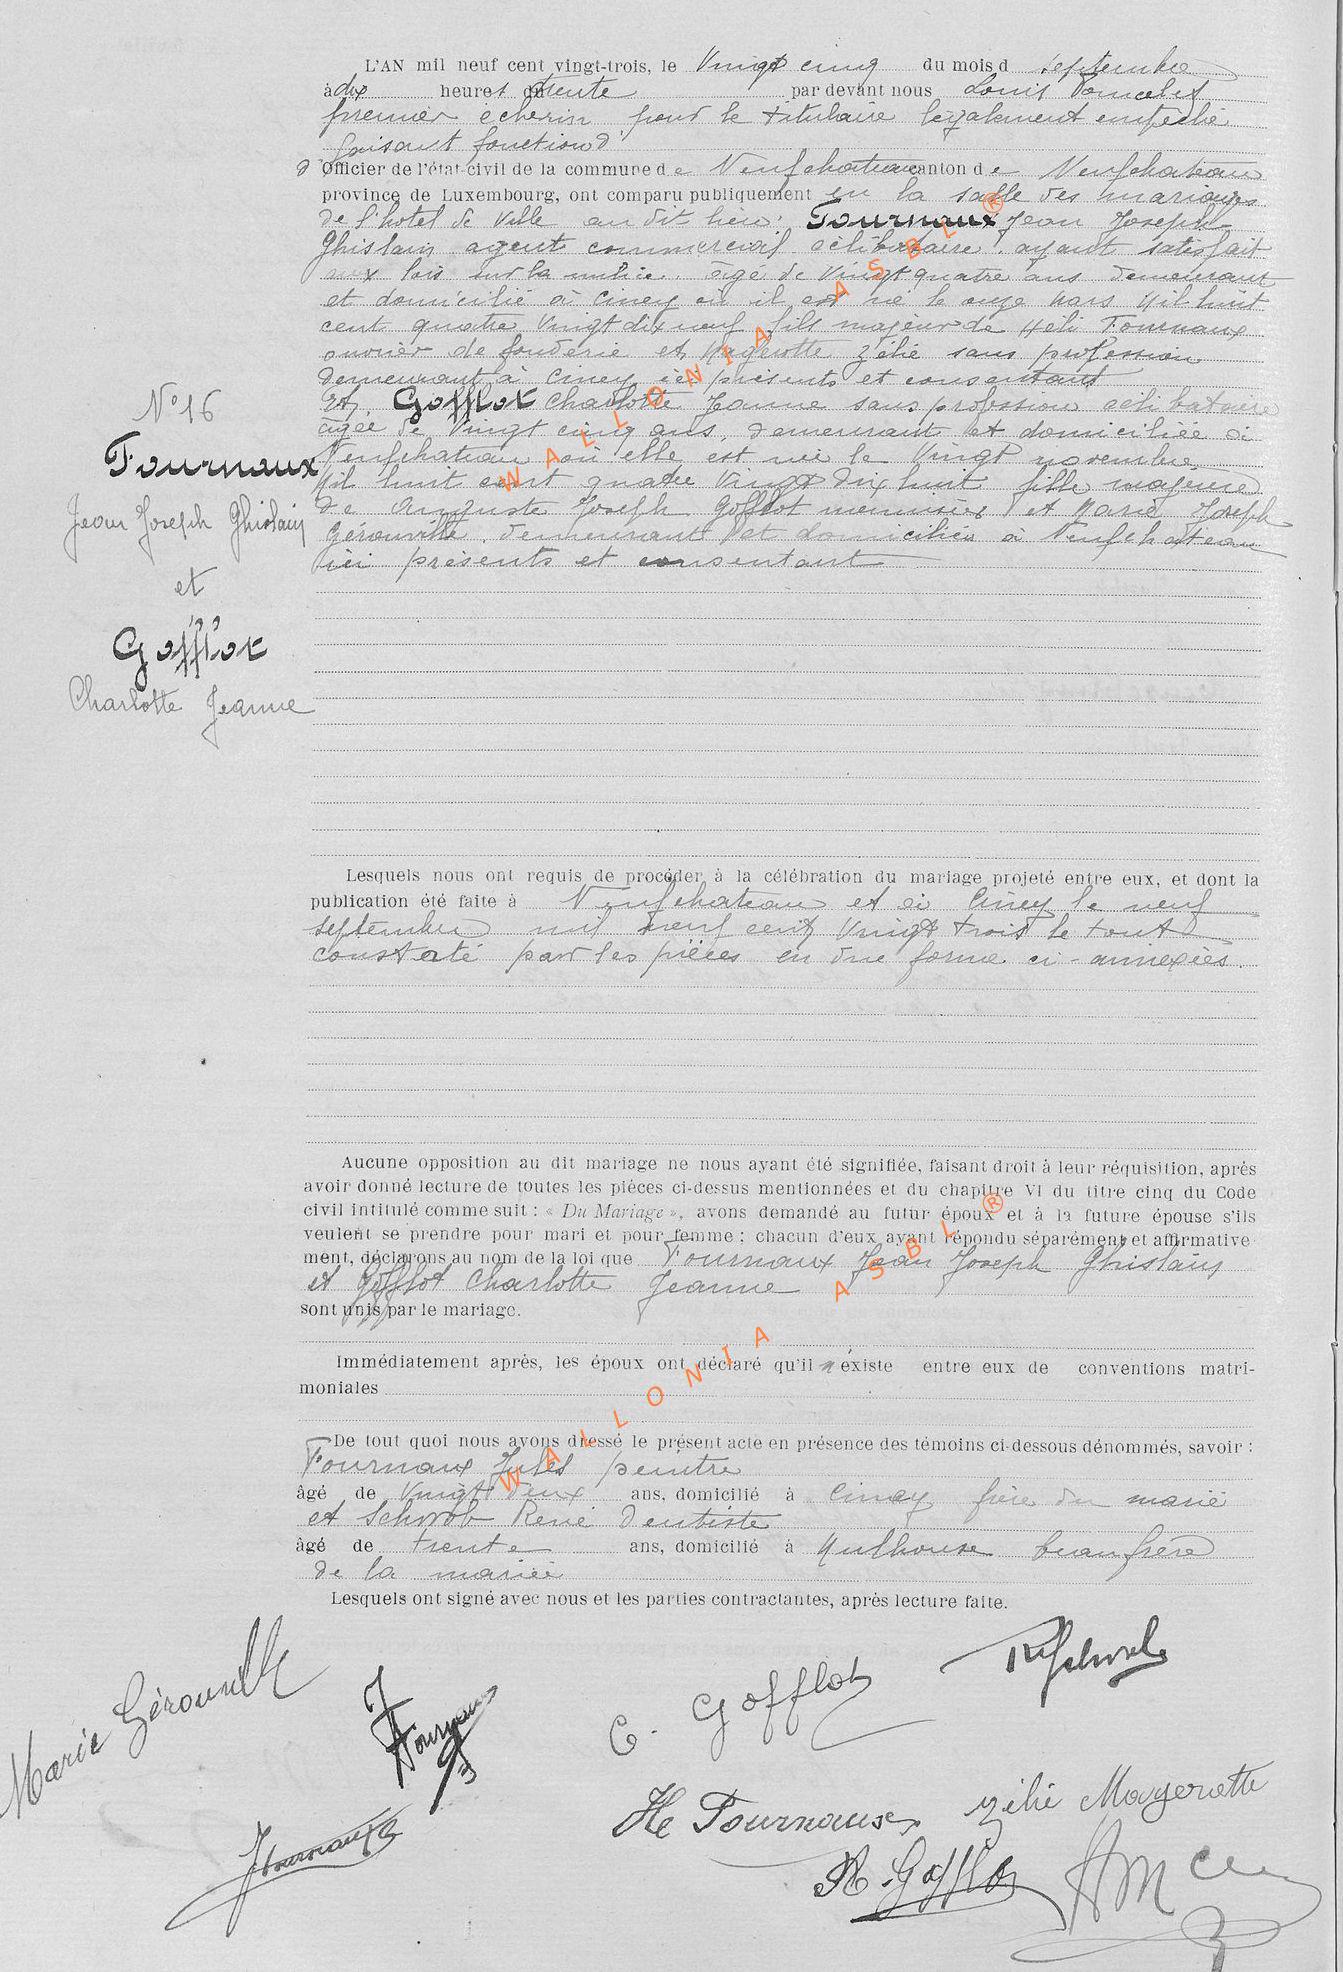 L'AN mil neuf cent vingt-trois, le Vingt cinq du mois d septembre
à dix heures trente par devant nous Louis Poncelet
premier échevin pour le titulaire légalement empêché
faisant fonction d'
d' Officier de l'état-civil de la commune de Neufchateau canton de Neufchateau
province de Luxembourg, ont comparu publiquement en la salle des mariages
de l'hotel de Ville au dit lieu: Fournaux Jean Joseph
Ghislain agent commercial célibataire, ayant satisfait
aux lois sur la milice, âgé de Vingt quatre ans demeurant
et domicilié à Ciney où il est né le onze Mars Mil huit
cent quatre Vingt dix neuf fils majeur de Héli Fournaux
ouvrier de fonderie et Magerotte Zélie sans profession
demeurant à Ciney ici présents et consentants
Et, Gofflot Charlotte Jeanne sans profession célibataire
agée de Vingt cinq ans, demeurant et domiciliée à
Neufchateau où elle est née le Vingt novembre
Mil huit cent quatre Vingt dix huit fille majeure
de Auguste Joseph Gofflot menuisier et Marie Joseph
Gérouville, demeurant et domiciliés à Neufchateau
ici présents et consentant
N° 16
Fournaux
Jean Joseph Ghislain
et
Gofflot
Charlotte Jeanne
Lesquels nous ont requis de procéder à la célébration du mariage projeté entre eux, et dont la
publication été faite à Neufchateau et à Ciney le neuf
septembre mil neuf cent Vingt trois le tout
constaté par les pièces en due forme ci-annexées.
Aucune opposition au dit mariage ne nous ayant été signifiée, faisant droit à leur réquisition, après
avoir donné lecture de toutes les pièces ci-dessus mentionnées et du chapitre VI du titre cinq du Code
civil intitulé comme suit : « Du Mariage », avons demandé au futur époux et à la future épouse s'ils
veulent se prendre pour mari et pour femme ; chacun d'eux ayant répondu séparément et affirmative-
ment, déclarons au nom de la loi que Fournaux Jean Joseph Ghislain
et Gofflot Charlotte Jeanne
sont unis par le mariage.
Immédiatement après, les époux ont déclaré qu'il n'existe entre eux de conventions matri-
moniales
De tout quoi nous avons dressé le présent acte en présence des témoins ci-dessous dénommés, savoir :
Fournaux Jules peintre
âgé de Vingt deux ans, domicilié à Ciney frère du marié
et Schwob René dentiste
âgé de trente ans, domicilié à Mulhouse beau frère
de la mariée
Lesquels ont signé avec nous et les parties contractantes, après lecture faite.
Marie Gérouville
J Fournaux
C. Gofflot
R Schwob
He Fournaux
Zélie Magerotte
JFournaux
A. Gofflot
WALLONIA ASBL ®
WALLONIA ASBL ®